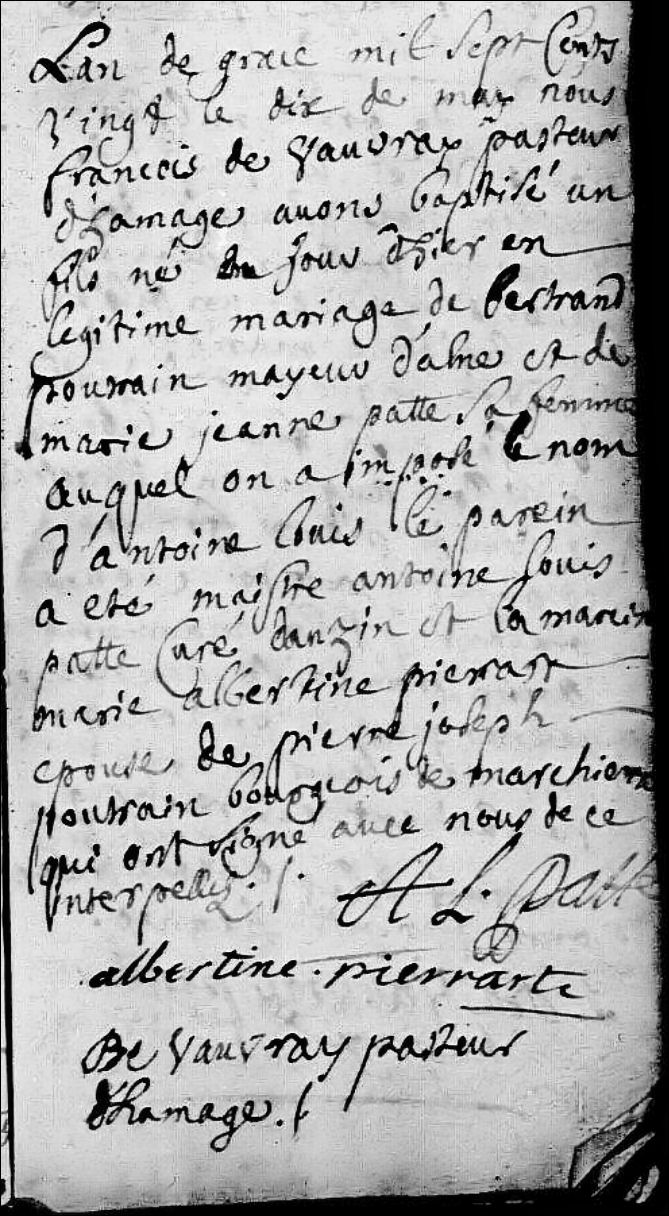 Lan de grace mil Sept Cents
vingt le dix de may nous
francois de Vauvray pasteur
d'hamage avons baptisé un
fils né du jour d'hier en
legitime mariage de bertrand
poutrain mayeur d'alne et de
marie jeanne patte sa femme
auquel on a imposé le nom
d'antoine louis le parein
a eté maistre antoine louis
patte Curé danzin et la marein
marie albertine pierrart
epouse de pierre joseph
poutrain bourgeois de marchienne
qui ont signé avec nous de ce
interpellés ./.
A L. Patte
albertine . pierrarte
De Vauvray pasteur
d'hamage ./